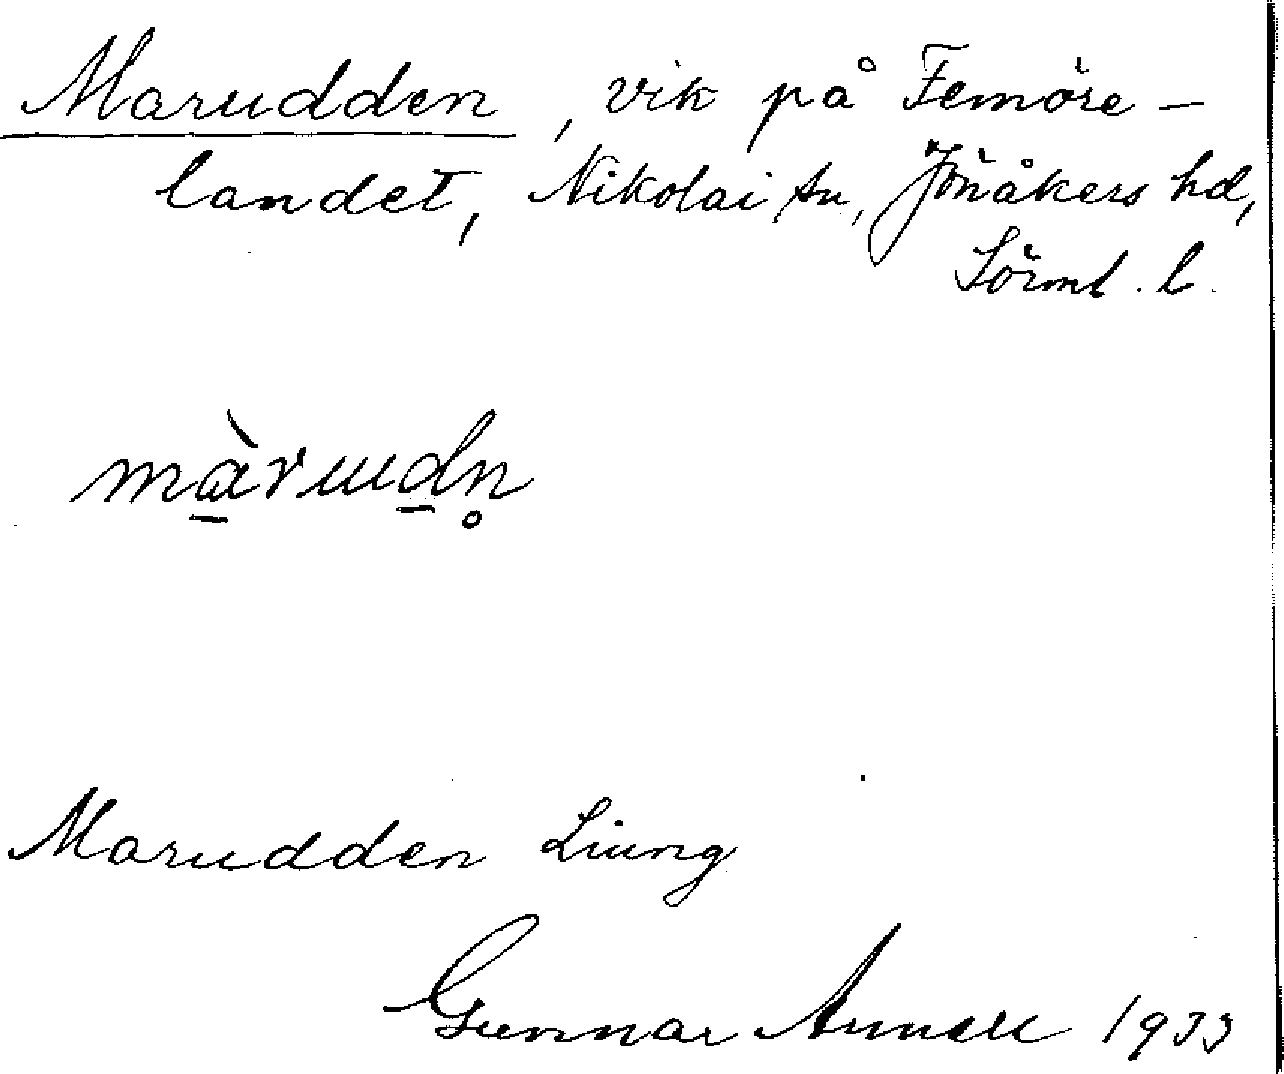 Marudden, vik på Femöre-
landet, Nikolai sn, Jönåkers hd,
Sörml. l.
màrɯdn̥
Marudden Liung
Gunnar Annell 1933